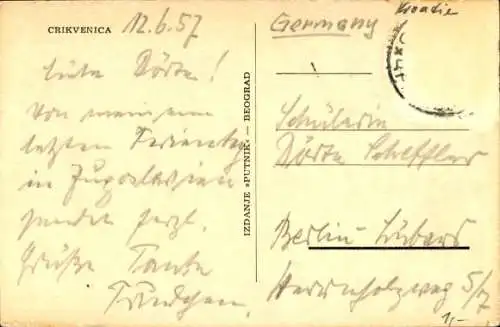 CRIKVENICA
12.6.57
Liebe Dörte!
Von meinem
letzten Ferientag
in Jugoslavien
sendet herzl.
Grüße Tante
Trudchen.
IZDANJE »PUTNIK« — BEOGRAD
Kroatie
Germany
Schülerin
Dörte Scheffler
Berlin-Lübars
5/7
1,-